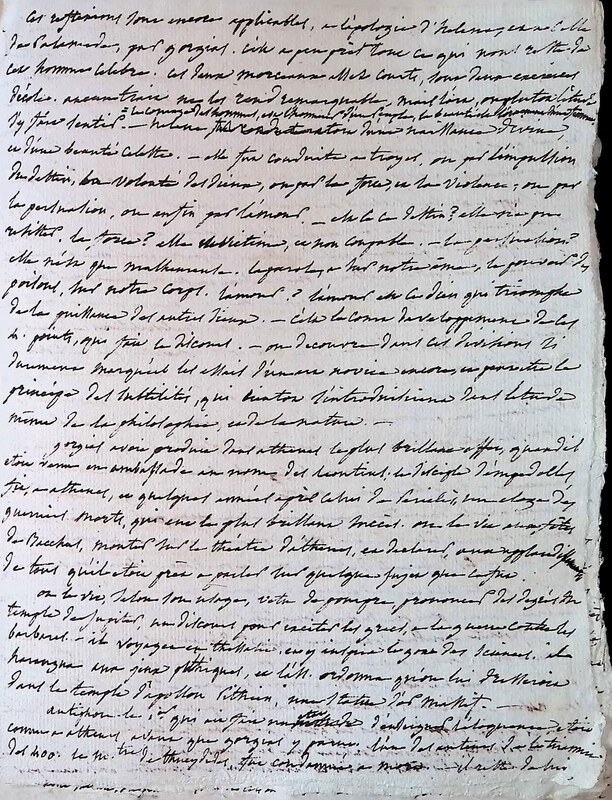 Ces reflexions sont encore applicables, a l'apologie d'helene, et a celle
de Palamede, par gorgias. c'est a peu près tout ce qui nous reste de
cet homme celebre. ces deux morceaux assez courts, sont deux exercices
d'école. aucun trait ne les rend remarquable, mais l'on
d'y faire sentir. — helene, d'une naissance divine
et d'une beauté celeste. — elle fut conduite a troyes, ou par l'impulsion
du destin, la volonté des dieux, ou par la force, et la violence ; ou par
la persuasion, ou enfin par l'amour. — est ce le destin ? elle n'a pu
resister. la force ? elle est victime, et non coupable. — la persuasion ?
elle n'est que malheureuse. la parole, a sur notre âme, le pouvoir des
poisons, sur notre corps. l'amour ? l'amour est ce dieu qui triomphe
de la puissance des autres dieux. — c'est le court developpement de ces
4 points, qui fait ce discours. — on decouvre dans ces divisions si
durement marquées les essais d'un art novice encore, et peut être le
principe des subtilités, qui bientôt s'introduisirent dans l'étude
même de la philosophie, et de la nature. —
gorgias avoit produit dans athenes le plus brillant effet, quand il
étoit venu en ambassade au nom des leontins. le disciple d'empedocles
fit, a athenes, et quelques années après celui de Periclès, un eloge des
guerriers morts, qui eut le plus brillant succès. on le vit aux fêtes
de Bacchus, monter sur le théatre d'athenes, et declarer, aux applaudissements
de tous qu'il etoit prêt a parler sur quelque sujet que ce fut.
on le vit, selon son usage, vetu de pourpre, prononcer des degrés du
temple de Jupiter, un discours pour exciter les grecs, a la guerre contre les
barbares. — il voyagea en thessalie, et y inspira le gout des sciences. il
harangua aux jeux pithiques, et l'ass. ordonna qu'on lui dresseroit
dans le temple d'apollon Pithien, une statue d'or massif. —
antiphon le 1er qui ait fait d'enseigner l'eloquence etoit
connu a athenes avant que gorgias y parut. l'un des auteurs de la tyrannie
des 400. le m.tre de thucydide, fut condamné a mort — il reste de lui